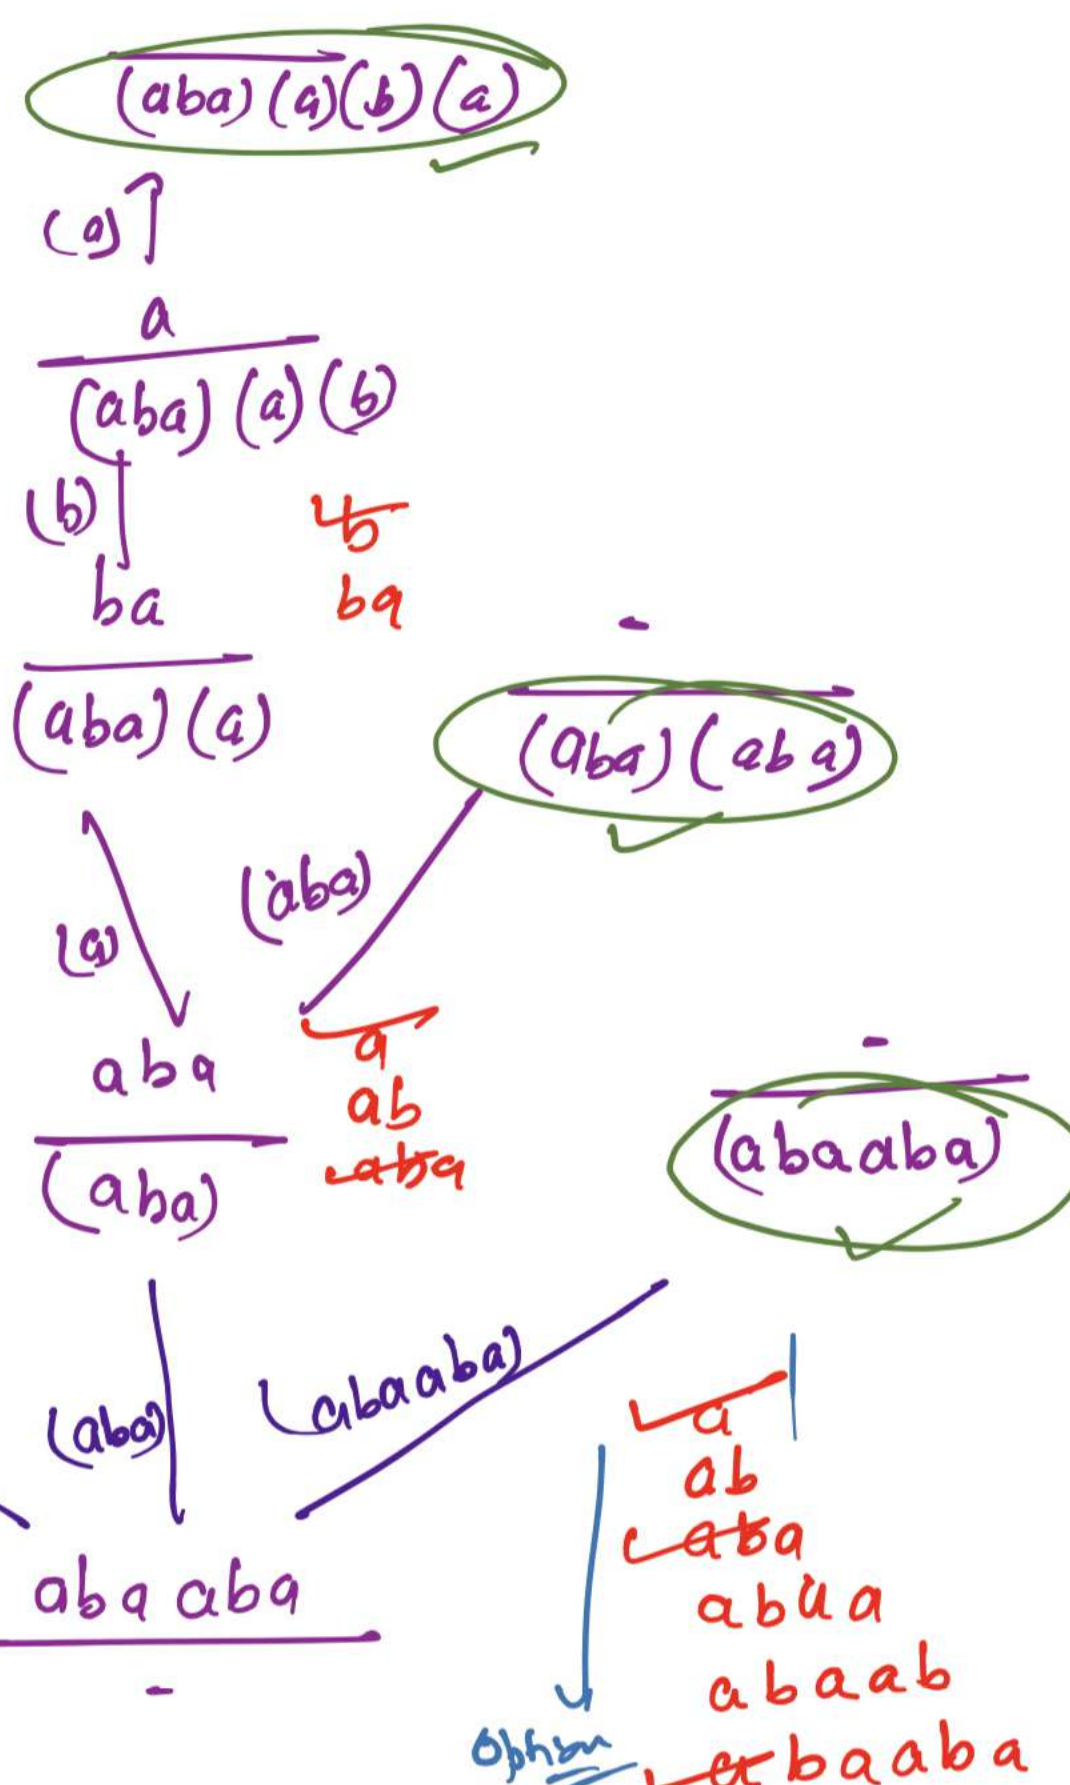 (aba) (a) (b) (a)
(a)
a
(aba) (a) (b)
(b)
b
ba
ba
(aba) (a)
-
(aba) (aba)
(aba)
(a)
a
aba
ab
aba
(aba)
-
(abaaba)
(aba)
(abaaba)
a
ab
aba
abaa
abaaba
-
abaab
option
abaaba